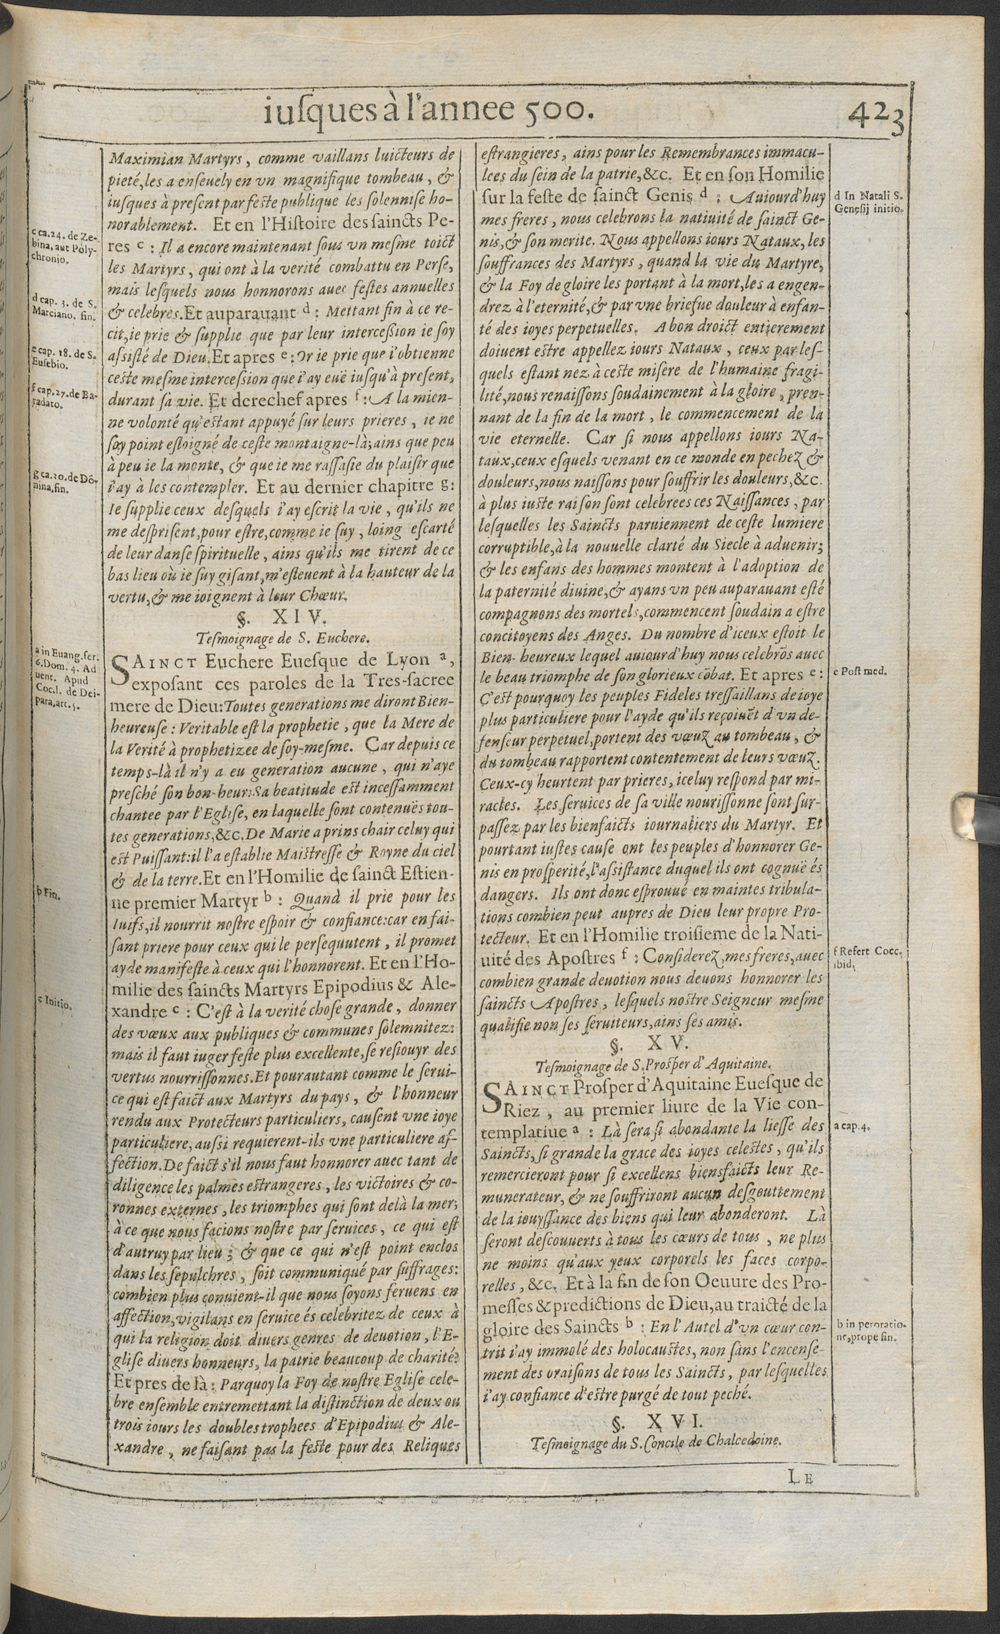 iuſques à l'annee 500.
423
Maximian Martyrs, comme vaillans luicteurs de
pieté, les a enſeuely en vn magnifique tombeau, &
iuſques à preſent par feſte publique les ſolenniſe ho-
norablement. Et en l'Hiſtoire des ſaincts Pe-
res c : Il a encore maintenant ſous vn meſme toict
les Martyrs, qui ont à la verité combattu en Perſe,
mais leſquels nous honnorons auec feſtes annuelles
& celebres. Et auparauant d : Mettant fin à ce re-
cit, ie prie & ſupplie que par leur interceßion ie ſoy
aſsiſté de Dieu. Et apres e : Or ie prie que i'obtienne
ceſte meſme interceſsion que i'ay euë iuſqu'à preſent,
durant ſa vie. Et derechef apres f : A la mien-
ne volonté qu'eſtant appuyé ſur leurs prieres, ie ne
ſoy point eſloigné de ceſte montaigne-là; ains que peu
à peu ie la monte, & que ie me raſſaſie du plaiſir que
i'ay à les contempler. Et au dernier chapitre g :
Ie ſupplie ceux deſquels i'ay eſcrit la vie, qu'ils ne
me deſpriſent, pour eſtre, comme ie ſuy, loing eſcarté
de leur danſe ſpirituelle, ains qu'ils me tirent de ce
bas lieu où ie ſuy giſant, m'eſleuent à la hauteur de la
vertu, & me ioignent à leur Chœur.
§. XIV.
Teſmoignage de S. Euchere.
SAINCT Euchere Eueſque de Lyon a,
expoſant ces paroles de la Tres-ſacree
mere de Dieu: Toutes generations me diront Bien-
heureuſe : Veritable eſt la prophetie, que la Mere de
la Verité à prophetizee de ſoy-meſme. Car depuis ce
temps-là il n'y a eu generation aucune, qui n'aye
preſché ſon bon-heur: Sa beatitude eſt inceſſamment
chantee par l'Egliſe, en laquelle ſont contenuës tou-
tes generations, &c. De Marie a prins chair celuy qui
eſt Puiſſant: il l'a eſtablie Maiſtreſſe & Royne du ciel
& de la terre. Et en l'Homilie de ſainct Eſtien-
ne premier Martyr b : Quand il prie pour les
Iuifs, il nourrit noſtre eſpoir & confiance: car en fai-
ſant priere pour ceux qui le perſequutent, il promet
ayde manifeſte à ceux qui l'honnorent. Et en l'Ho-
milie des ſaincts Martyrs Epipodius & Ale-
xandre c : C'eſt à la verité choſe grande, donner
des vœux aux publiques & communes ſolemnitez:
mais il faut iuger feſte plus excellente, ſe reſiouyr des
vertus nourriſſonnes. Et pourautant comme le ſerui-
ce qui eſt faict aux Martyrs du pays, & l'honneur
rendu aux Protecteurs particuliers, cauſent vne ioye
particuliere, auſsi requierent-ils vne particuliere af-
fection. De faict s'il nous faut honnorer auec tant de
diligence les palmes eſtrangeres, les victoires & co-
ronnes externes, les triomphes qui ſont delà la mer;
à ce que nous facions noſtre par ſeruices, ce qui eſt
d'autruy par lieu; & que ce qui n'eſt point enclos
dans les ſepulchres, ſoit communiqué par ſuffrages:
combien plus conuient-il que nous ſoyons feruens en
affection, vigilans en ſeruice és celebritez de ceux à
qui la religion doit diuers genres de deuotion, l'E-
gliſe diuers honneurs, la patrie beaucoup de charité?
Et pres de là : Parquoy la Foy de noſtre Egliſe cele-
bre enſemble entremettant la diſtinction de deux ou
trois iours les doubles trophees d'Epipodius & Ale-
xandre, ne faiſant pas la feſte pour des Reliques
c ca. 24. de Ze-
bina, aut Poly-
chronio.
d cap. 3. de S.
Marciano. fin.
e cap. 18. de S.
Euſebio.
f cap. 27. de Ba-
radato.
g ca. 20. de Dō-
nina, fin.
a in Euang. ſer.
6. Dom. 4. Ad
uent. Apud
Cocl. de Dei-
para, art. 5.
b Fin.
c Initio.
eſtrangieres, ains pour les Remembrances immacu-
lees du ſein de la patrie, &c. Et en ſon Homilie
ſur la feſte de ſainct Genis d : Auiourd'huy
mes freres, nous celebrons la natiuité de ſainct Ge-
nis, & ſon merite. Nous appellons iours Nataux, les
ſouffrances des Martyrs, quand la vie du Martyre,
& la Foy de gloire les portant à la mort, les a engen-
drez à l'eternité, & par vne briefue douleur à enfan-
té des ioyes perpetuelles. A bon droict entierement
doiuent eſtre appellez iours Nataux, ceux par leſ-
quels eſtant nez à ceſte miſere de l'humaine fragi-
lité, nous renaiſſons ſoudainement à la gloire, pren-
nant de la fin de la mort, le commencement de la
vie eternelle. Car ſi nous appellons iours Na-
taux, ceux eſquels venant en ce monde en pechez &
douleurs, nous naiſſons pour ſouffrir les douleurs, &c.
à plus iuſte raiſon ſont celebrees ces Naiſſances, par
leſquelles les Saincts paruiennent de ceſte lumiere
corruptible, à la nouuelle clarté du Siecle à aduenir;
& les enfans des hommes montent à l'adoption de
la paternité diuine, & ayans vn peu auparauant eſté
compagnons des mortels, commencent ſoudain a eſtre
concitoyens des Anges. Du nombre d'iceux eſtoit le
Bien-heureux lequel auiourd'huy nous celebrōs auec
le beau triomphe de ſon glorieux cōbat. Et apres e :
C'eſt pourquoy les peuples Fideles treſſaillans de ioye
plus particuliere pour l'ayde qu'ils reçoiuēt d'vn de-
fenſeur perpetuel, portent des vœuz au tombeau, &
du tombeau rapportent contentement de leurs vœuz.
Ceux-cy heurtent par prieres, iceluy reſpond par mi-
racles. Les ſeruices de ſa ville nourriſſonne ſont ſur-
paſſez par les bienfaicts iournaliers du Martyr. Et
pourtant iuſtes cauſe ont les peuples d'honnorer Ge-
nis en proſperité, l'aſſiſtance duquel ils ont cognuë és
dangers. Ils ont donc eſprouué en maintes tribula-
tions combien peut aupres de Dieu leur propre Pro-
tecteur. Et en l'Homilie troiſieme de la Nati-
uité des Apoſtres f : Conſiderez, mes freres, auec
combien grande deuotion nous deuons honnorer les
ſaincts Apoſtres, leſquels noſtre Seigneur meſme
qualifie non ſes ſeruiteurs, ains ſes amis.
§. XV.
Teſmoignage de S. Proſper d'Aquitaine.
SAINCT Proſper d'Aquitaine Eueſque de
Riez, au premier liure de la Vie con-
templatiue a : Là ſera ſi abondante la lieſſe des
Saincts, ſi grande la grace des ioyes celeſtes, qu'ils
remercieront pour ſi excellens biensfaicts leur Re-
munerateur, & ne ſouffriront aucun deſgouttement
de la iouyſſance des biens qui leur abonderont. Là
ſeront deſcouuerts à tous les cœurs de tous, ne plus
ne moins qu'aux yeux corporels les faces corpo-
relles, &c. Et à la fin de ſon Oeuure des Pro-
meſſes & predictions de Dieu, au traicté de la
gloire des Saincts b : En l'Autel d'vn cœur con-
trit i'ay immolé des holocauſtes, non ſans l'encenſe-
ment des oraiſons de tous les Saincts, par leſquelles
i'ay confiance d'eſtre purgé de tout peché.
§. XVI.
Teſmoignage du S. Concile de Chalcedoine.
LE
d In Natali S.
Geneſij initio.
e Poſt med.
f Refert Cocc.
ibid.
a cap. 4.
b in peroratio-
ne, prope fin.